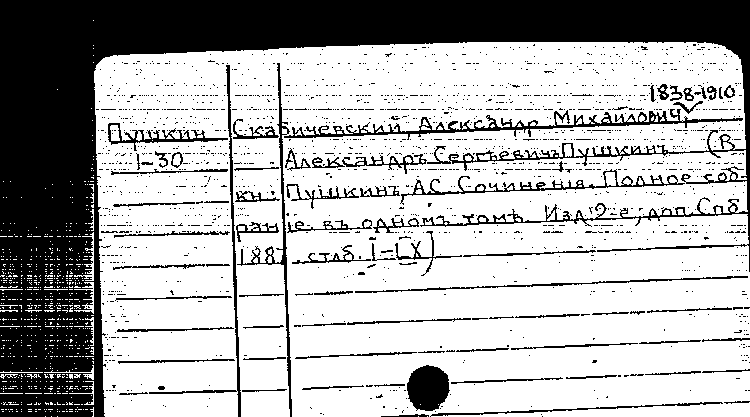 1838-1910
Пушкин Скабичевский, Александр Михайлович,
1-30 Александръ Сергѣевичъ Пушкинъ (В
кн: Пушкинъ, АС. Сочиненія. Полное соб-
раніе въ одномъ томѣ. Изд. 2-е, доп. Спб
1887, стлб. I-LX)